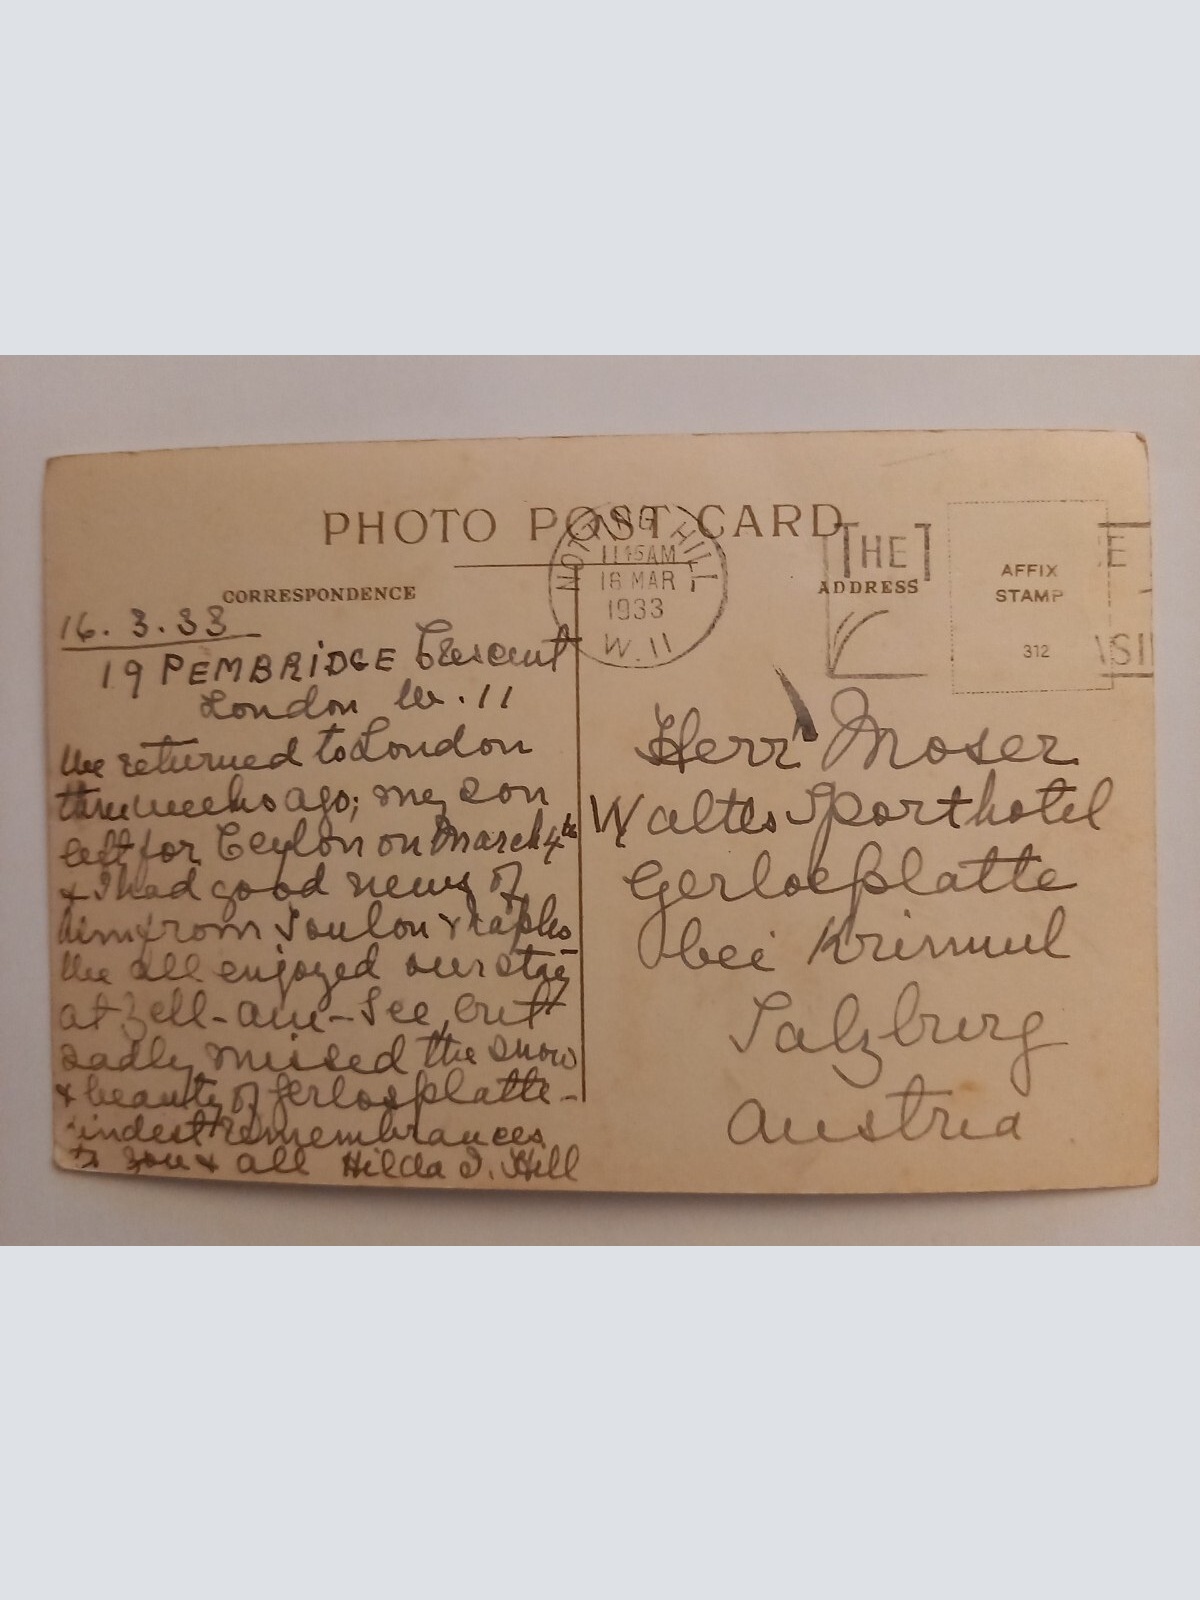 PHOTO POST CARD
NOTTING HILL
11 45AM
16 MAR
1933
W.11
THE
E
ASI
AFFIX
STAMP
312
CORRESPONDENCE
ADDRESS
16.3.33
19 PEMBRIDGE Crescent
London W.11
We returned to London
three weeks ago; my son
left for Ceylon on March 4th
& I had good news of
him from Toulon & Naples
We all enjoyed our stay
at Zell-am-See, but
sadly missed the snow
& beauty of Gerlosplatte -
kindest remembrances
to you & all Hilda I. Hill
Herr Moser
Waltes Sporthotel
Gerlosplatte
bei Krimml
Salzburg
Austria